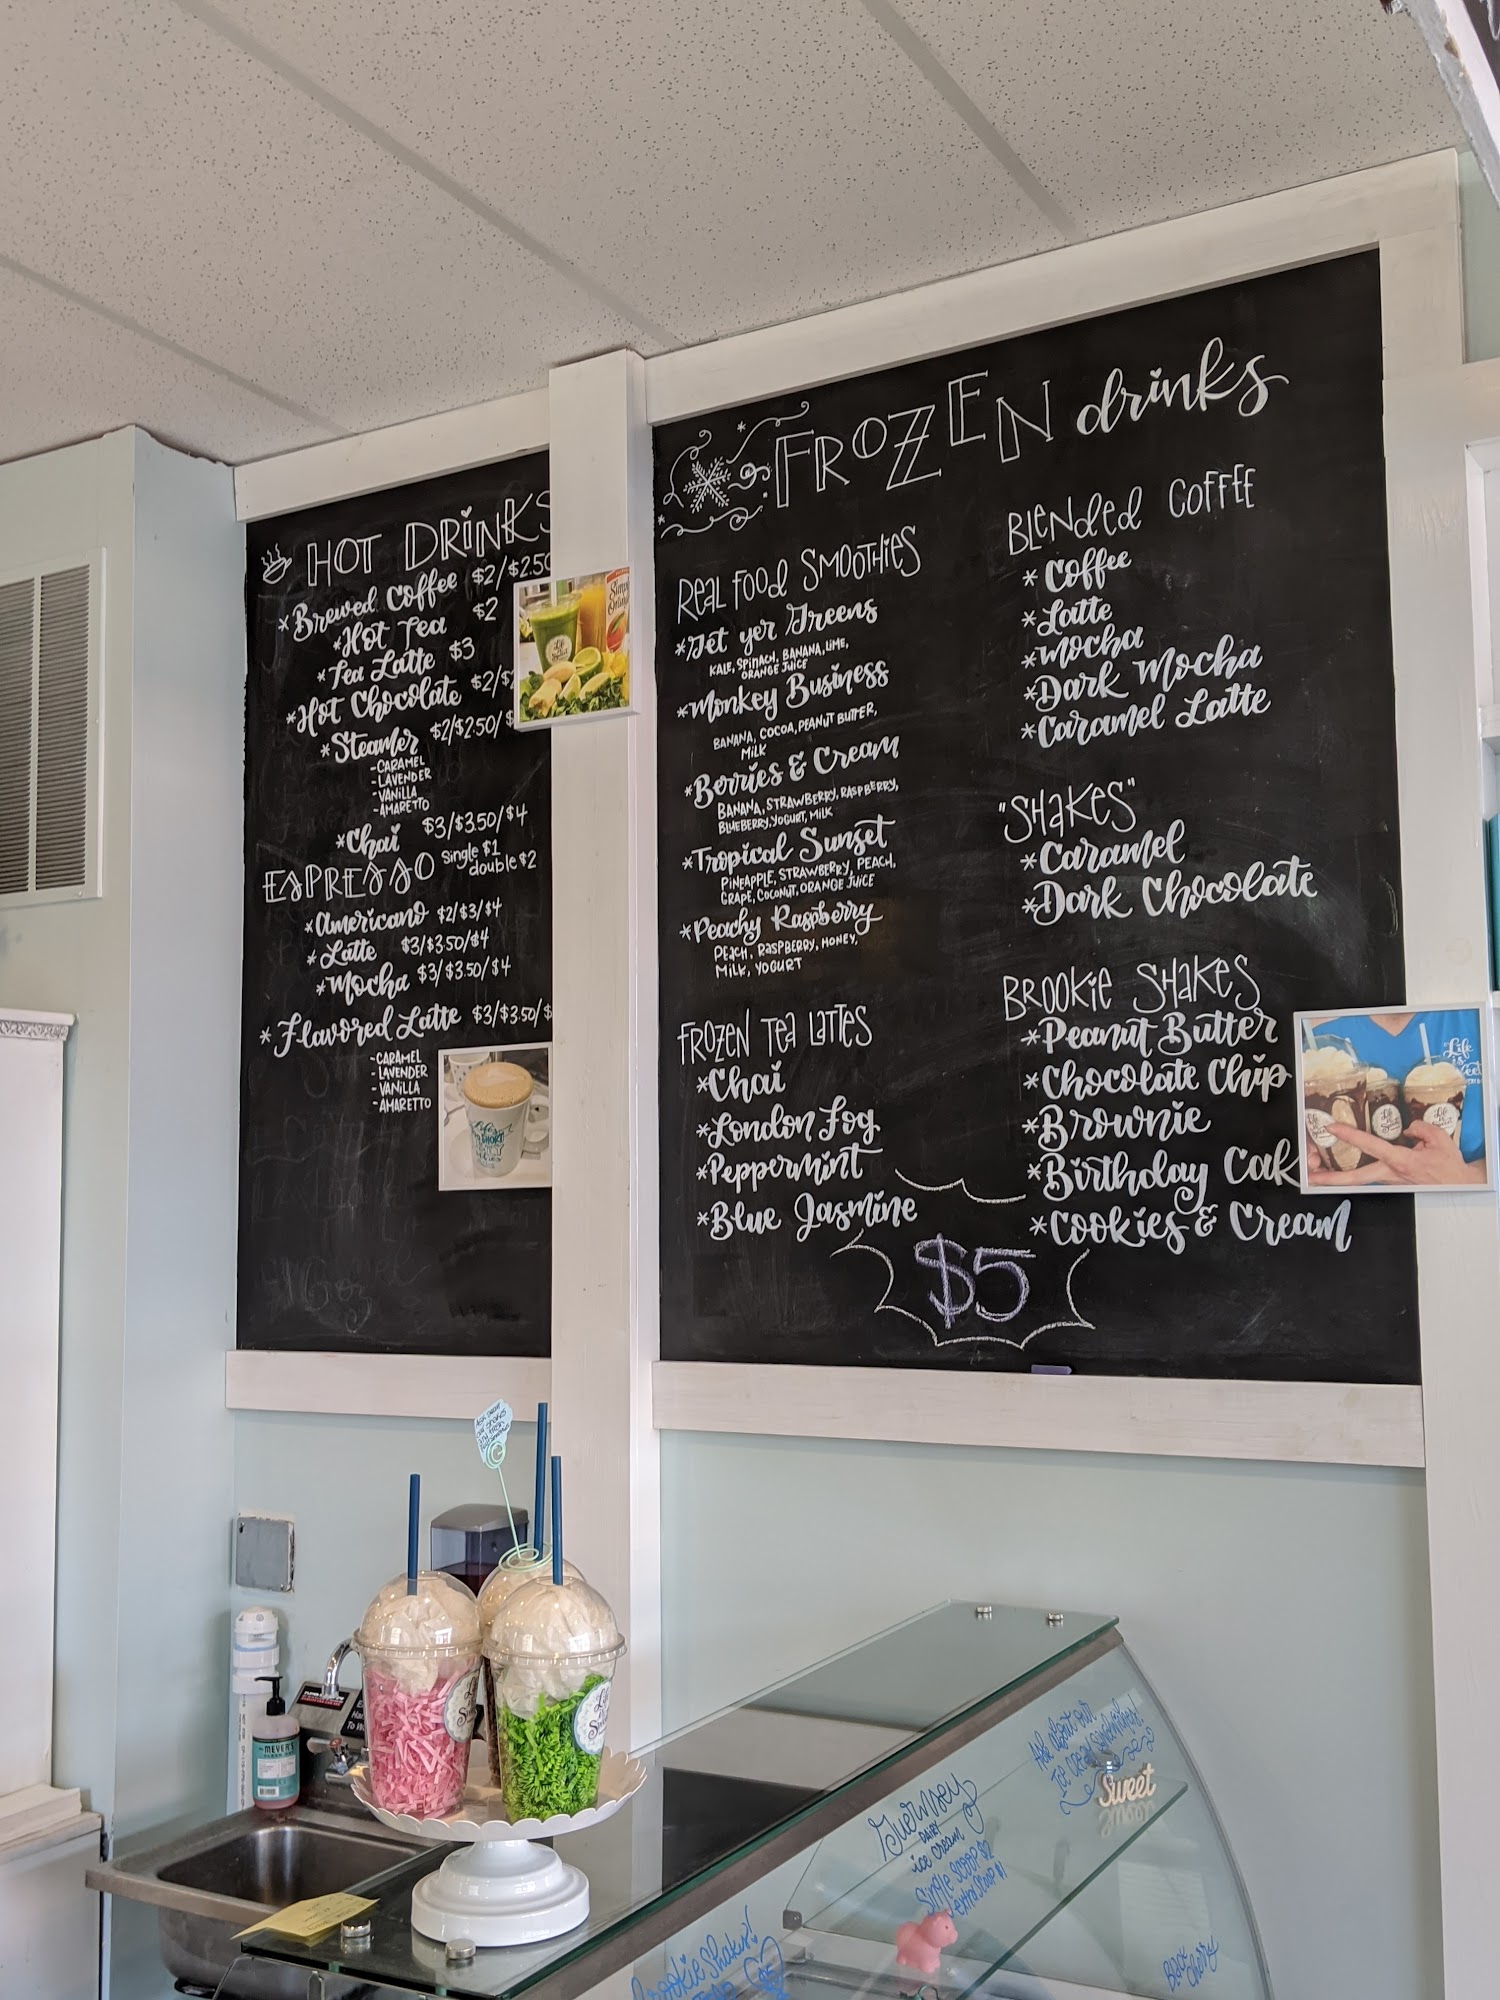 HOT DRINKS
*Brewed Coffee $2/$2.50
*Hot Tea $2
*Tea Latte $3
*Hot Chocolate $2/$2
*Steamer $2/$2.50/$
-CARAMEL
-LAVENDER
-VANILLA
-AMARETTO
*Chai $3/$3.50/$4
ESPRESSO single $1
double $2
*Americano $2/$3/$4
*Latte $3/$3.50/$4
*Mocha $3/$3.50/$4
*Flavored Latte $3/$3.50/$
-CARAMEL
-LAVENDER
-VANILLA
-AMARETTO
FROZEN drinks
REAL FOOD SMOOTHIES
*Get yer Greens
KALE, SPINACH, BANANA, LIME,
ORANGE JUICE
*Monkey Business
BANANA, COCOA, PEANUT BUTTER,
MILK
*Berries & Cream
BANANA, STRAWBERRY, RASPBERRY,
BLUEBERRY, YOGURT, MILK
*Tropical Sunset
PINEAPPLE, STRAWBERRY, PEACH,
GRAPE, COCONUT, ORANGE JUICE
*Peachy Raspberry
PEACH, RASPBERRY, HONEY,
MILK, YOGURT
FROZEN TEA LATTES
*Chai
*London Fog
*Peppermint
*Blue Jasmine
BLENDED COFFEE
*Coffee
*Latte
*Mocha
*Dark Mocha
*Caramel Latte
"SHAKES"
*Caramel
*Dark Chocolate
BROOKIE SHAKES
*Peanut Butter
*Chocolate Chip
*Brownie
*Birthday Cak
*Cookies & Cream
$5
Life
is
MEYER'S
Ask about our
Ice cream Sandwiches!
Sweet
Guernsey
DAIRY
ice cream
Single Scoop $2
extra Scoop $1
Brookie Shakes!
Black Cherry